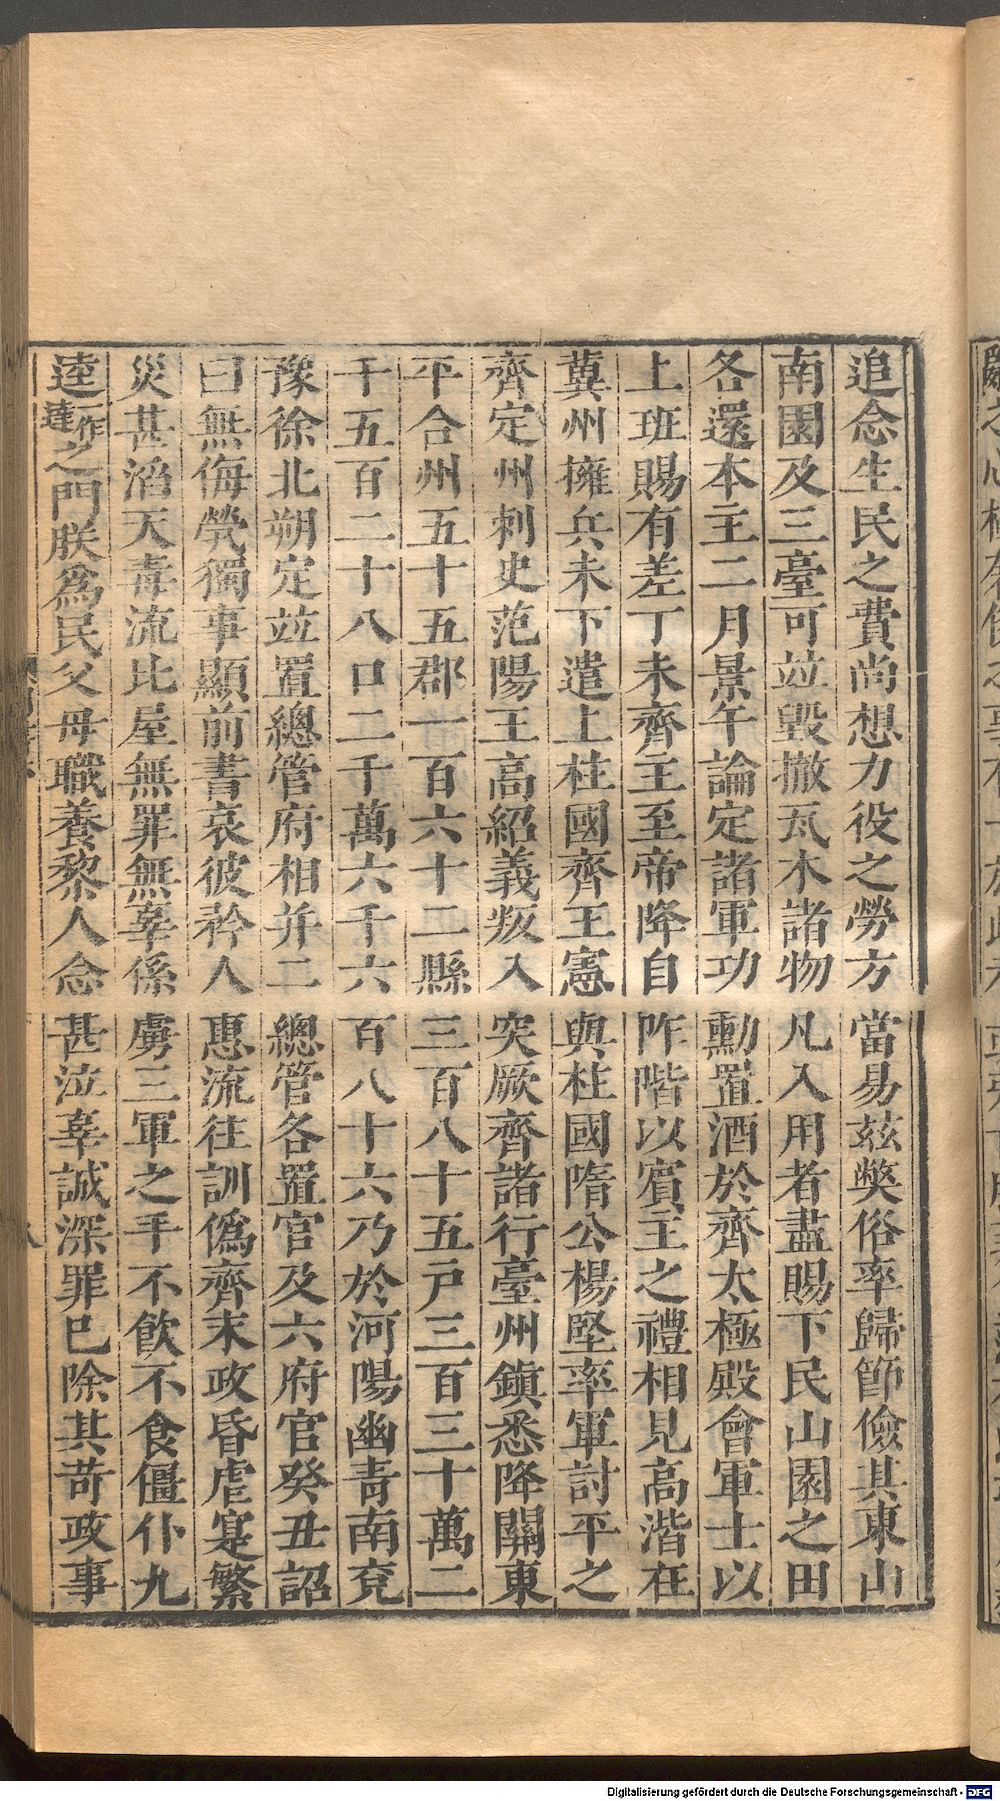 追念生民之費尚想力役之勞方當易茲弊俗率歸節儉其東山
南園及三臺可並毀撤瓦木諸物凡入用者盡賜下民山園之田
各還本主二月景午論定諸軍功勳置酒於齊太極殿會軍士以
上班賜有差丁未齊主至帝降自阼階以賓主之禮相見高湝在
冀州擁兵未下遣上柱國齊王憲與柱國隋公楊堅率軍討平之
齊定州刺史范陽王高紹義叛入突厥齊諸行臺州鎮悉降關東
平合州五十五郡一百六十二縣三百八十五戶三百三十萬二
千五百二十八口二千萬六千六百八十六乃於河陽幽青南兗
豫徐北朔定並置總管府相并二總管各置官及六府官癸丑詔
曰無侮煢獨事顯前書哀彼矜人惠流往訓僞齊末政昏虐寔繁
災甚滔天毒流比屋無罪無辜係虜三軍之手不飲不食僵仆九
逵作達之門朕爲民父母職養黎人念甚泣辜誠深罪已除其苛政事
Digitalisierung gefördert durch die Deutsche Forschungsgemeinschaft - DFG